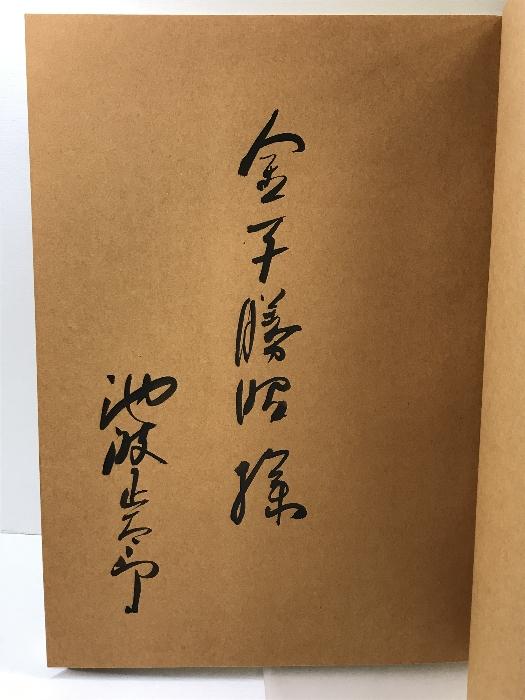 金子勝昭様
池波正太郎